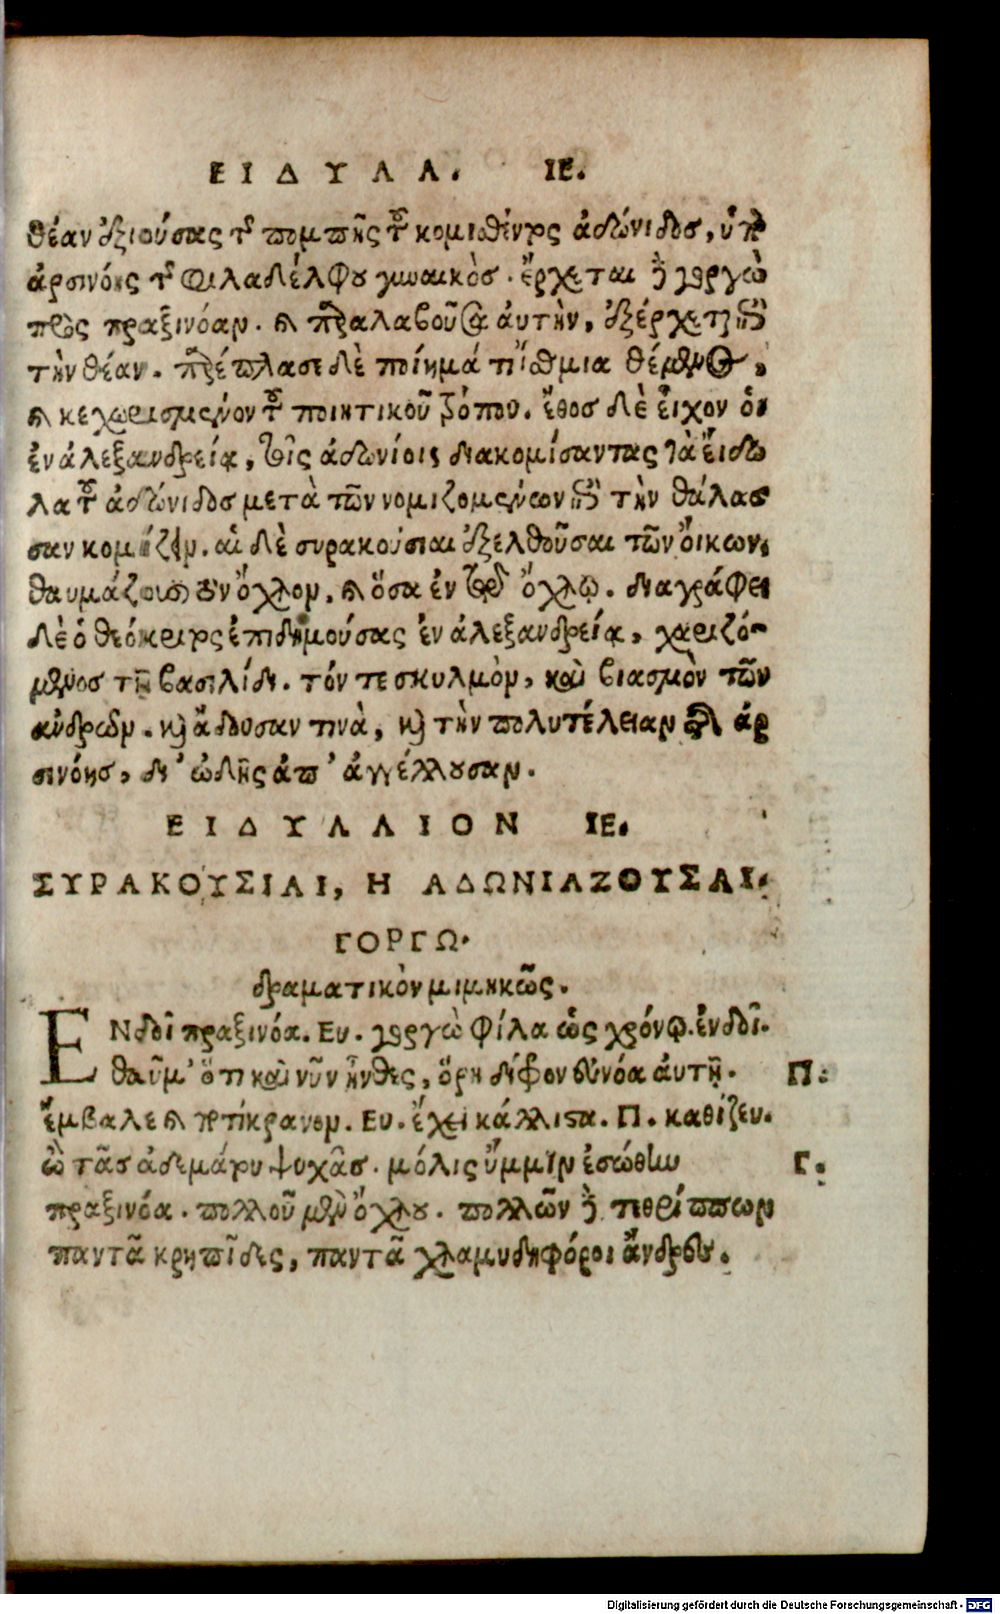 ΕΙΔΥΛΛ. ΙΕ.
θέαν ἐξιούσας τῆς πομπῆς τοῦ κομισθέντος ἀδώνιδος, ὑπὸ
ἀρσινόης τῆς φιλαδέλφου γυναικὸς. ἔρχεται δὲ γοργὼ
πρὸς πραξινόαν. καὶ παραλαβοῦσα ἀυτὴν, ἐξέρχεται ἐπὶ
τὴν θέαν. παρέπλασε δὲ ποίημά τι ἴσθμια θέμενος,
καὶ κεχωρισμένον τοῦ ποιητικοῦ τρόπου. ἔθος δὲ εἶχον ὁι
ἐν ἀλεξανδρείᾳ, τοῖς ἀδωνίοις διακομίσαντας τὰ ἔιδω
λα τοῦ ἀδώνιδος μετὰ τῶν νομιζομένων ἐπὶ τὴν θάλασ
σαν κομίζειν. αἱ δὲ συρακούσιαι ἐξελθοῦσαι τῶν ὄικων,
θαυμάζουσι τὸν ὄχλον, καὶ ὅσα ἐν τῷ ὄχλῳ. διαγράφει
δὲ ὁ θεόκριτος ἐπιδημούσας ἐν ἀλεξανδρείᾳ, χαριζό-
μενος τῇ βασιλίδι. τόν τε σκυλμὸν, καὶ βιασμὸν τῶν
ἀνδρῶν. καὶ ἄδουσαν τινὰ, καὶ τὴν πολυτέλειαν τῆς ἀρ
σινόης, δι' ὠδῆς ἀπ' ἀγγέλλουσαν.
ΕΙΔΥΛΛΙΟΝ ΙΕ.
ΣΥΡΑΚΟΥΣΙΑΙ, Η ΑΔΩΝΙΑΖΟΥΣΑΙ.
ΓΟΡΓΩ.
δραματικὸν μιμηκῶς.
ΕΝδοῖ πραξινόα. Ευ. γοργὼ φίλα ὡς χρόνῳ. ἐνδοῖ.
θαῦμ' ὅτι καὶ νῦν ἦνθες, ὅρη δίφον ἐυνόα ἀυτῇ. Π.
ἔμβαλε καὶ ποτίκρανον. Ευ. ἔχει κάλλιστα. Π. καθίζευ.
ὢ τᾶς ἀδεμάτου ψυχᾶς. μόλις ὔμμιν ἐσώθην Γ.
πραξινόα. πολλοῦ μὲν ὄχλου. πολλῶν δὲ τεθρίππων
παντᾶ κρηπῖδες, παντᾶ χλαμυδηφόροι ἄνδρες.
Digitalisierung gefördert durch die Deutsche Forschungsgemeinschaft - DFG